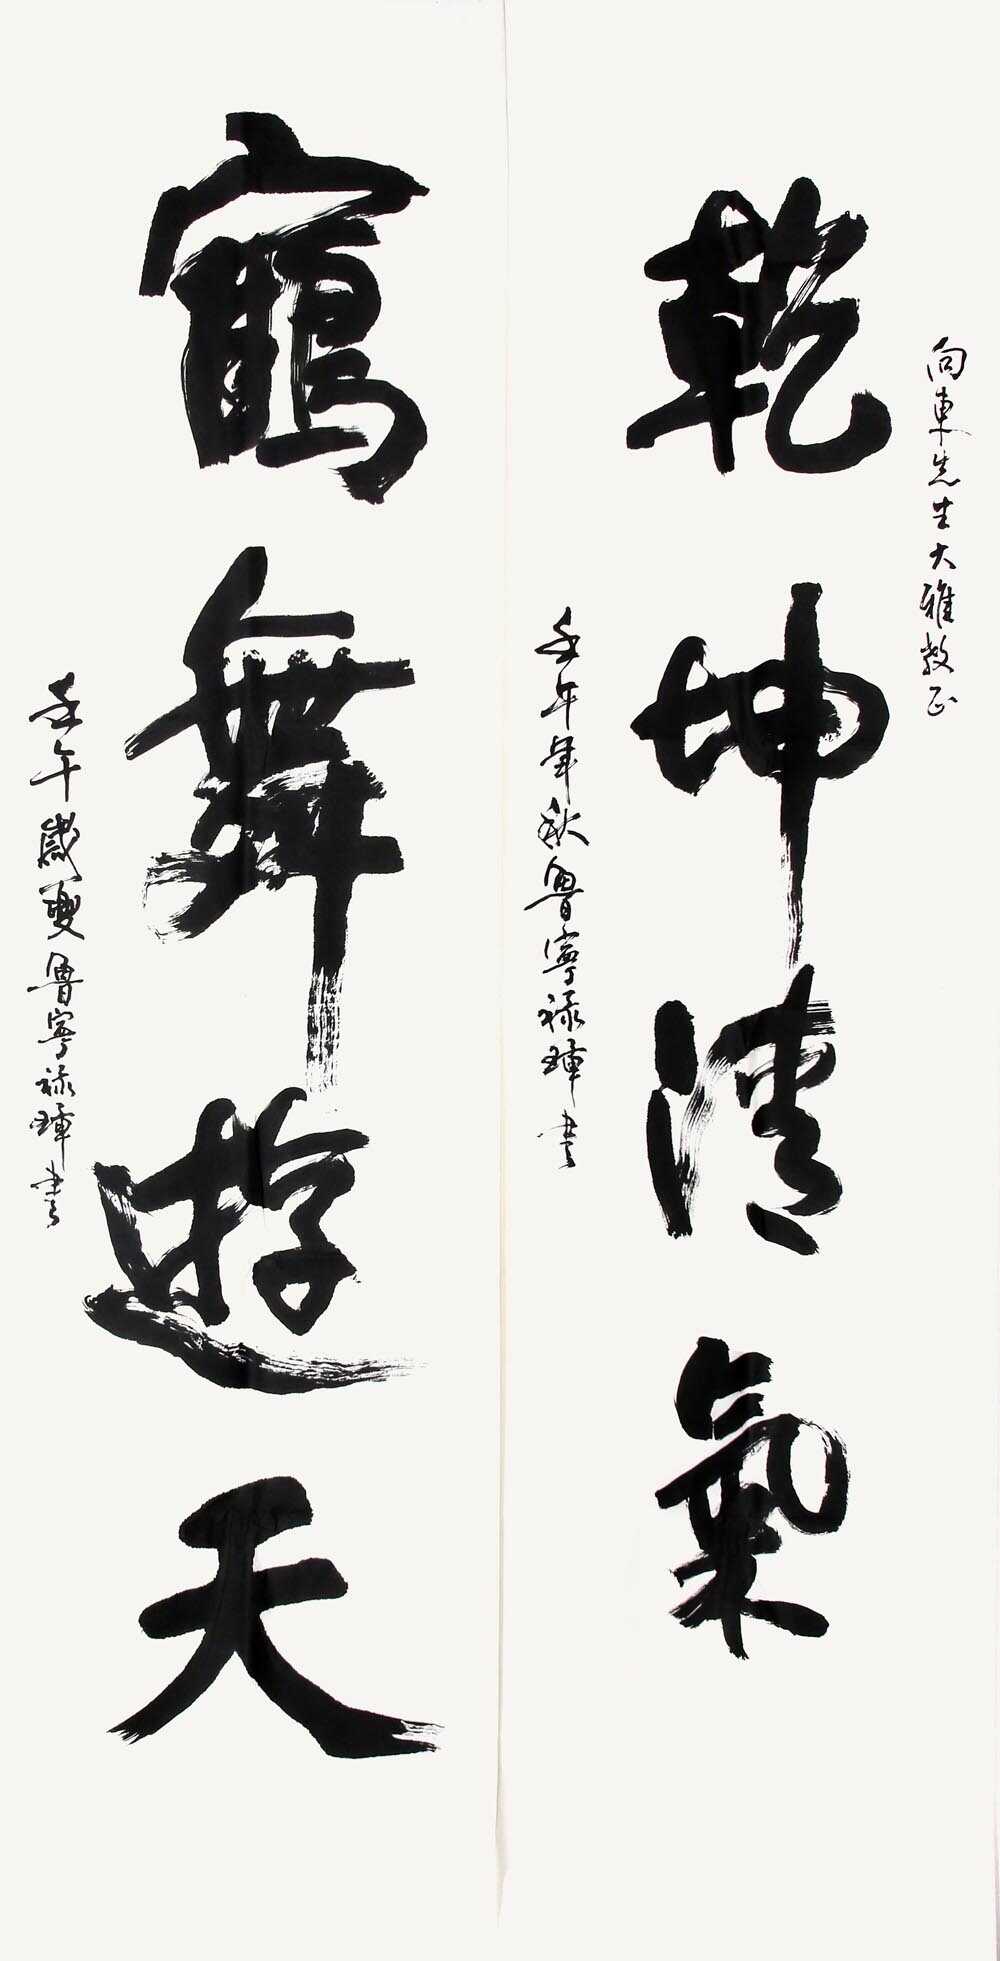 向東先生大雅教正
乾坤清氣
壬午年秋魯寧祿瑋書
鶴舞遊天
壬午歲夏魯寧祿瑋書